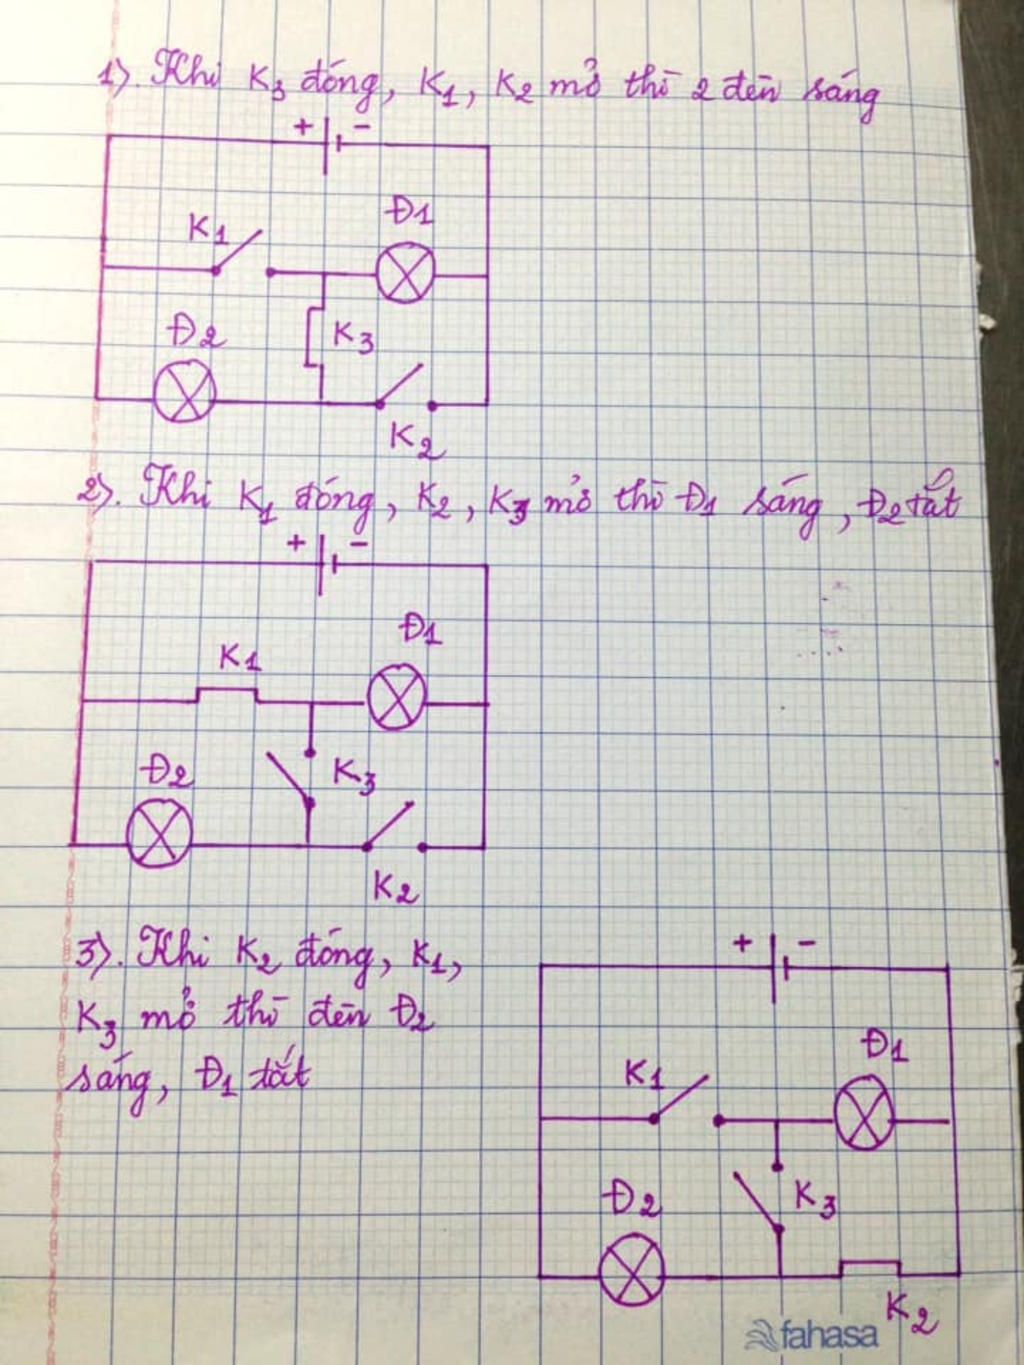 1). Khi K3 đóng, K1, K2 mở thì 2 đèn sáng
+ -
K1
Đ1
Đ2
K3
K2
2). Khi K1 đóng, K2, K3 mở thì Đ1 sáng, Đ2 tắt
+ -
K1
Đ1
Đ2
K3
K2
3). Khi K2 đóng, K1,
K3 mở thì đèn Đ2
sáng, Đ1 tắt
+ -
K1
Đ1
Đ2
K3
K2
fahasa